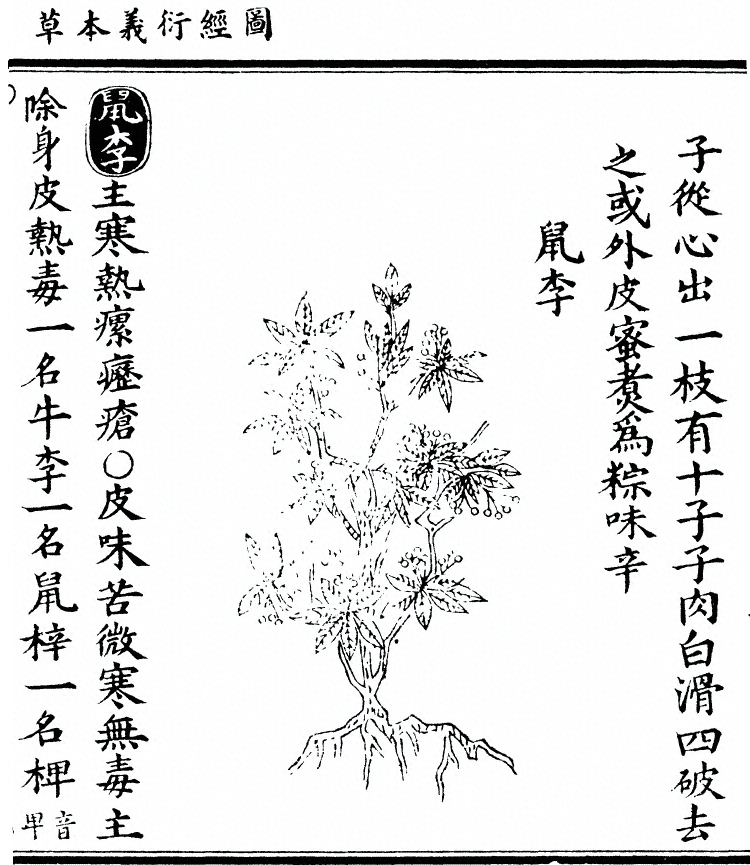 圖經衍義本草
子從心出一枝有十子子肉白滑四破去
之或外皮蜜煮爲粽味辛
鼠李
鼠李主寒熱瘰癧瘡○皮味苦微寒無毒主
除身皮熱毒一名牛李一名鼠梓一名椑音卑